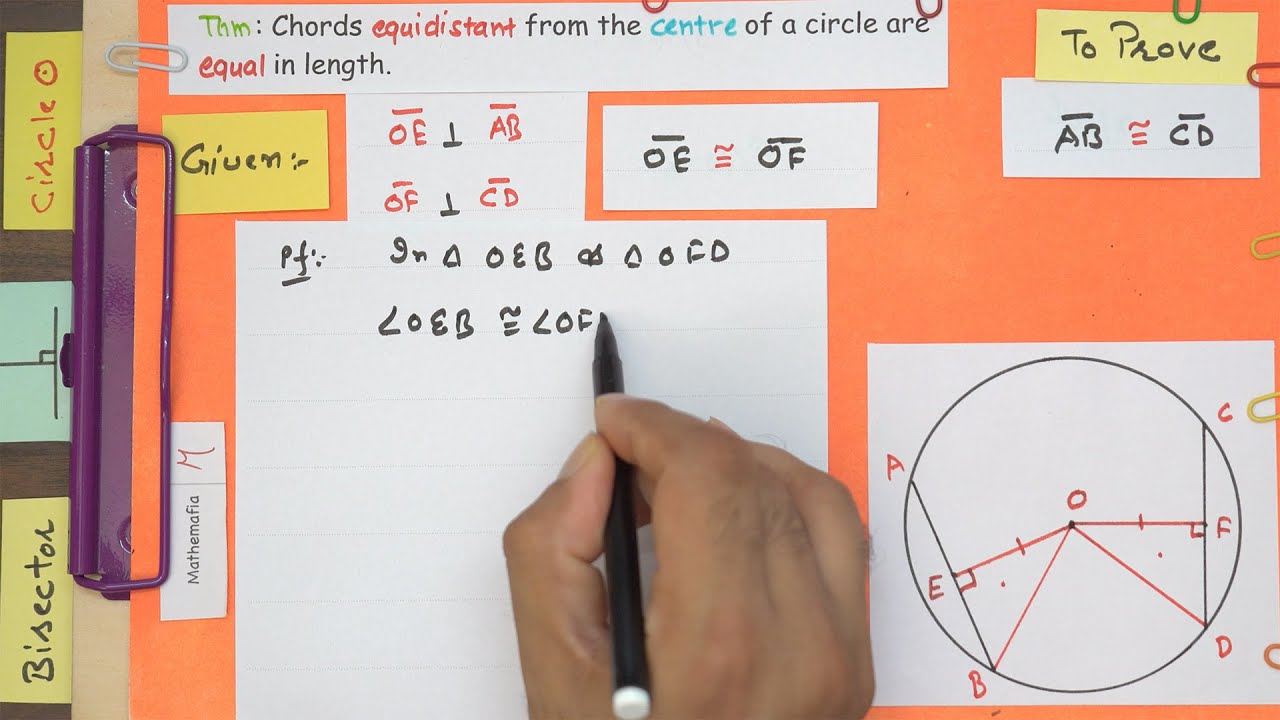 Thm: Chords equidistant from the centre of a circle are
equal in length.
To Prove
Circle O
Given:-
OE ⊥ AB
OF ⊥ CD
OE ≅ OF
AB ≅ CD
Pf:- In Δ OEB & Δ OFD
∠OEB ≅ ∠OF
M
Mathemafia
Bisector
C
A
O
F
E
D
B